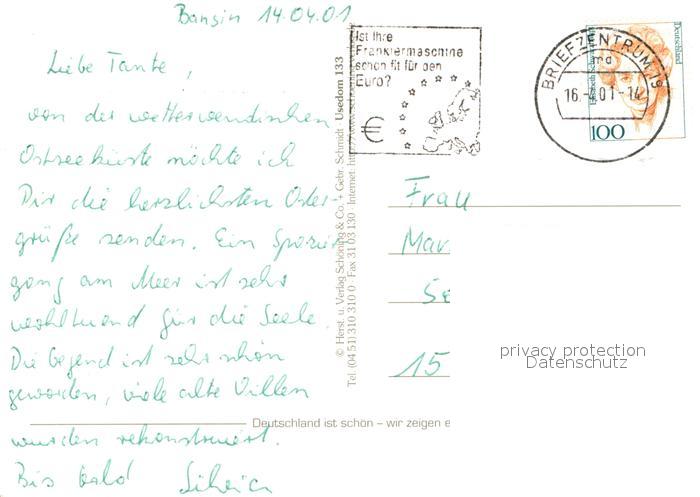 Bansin 14.04.01
Liebe Tante,
von der wetterwendischen
Ostseeküste möchte ich
Dir die herzlichsten Oster-
grüße senden. Ein Spazier
gang am Meer ist sehr
wohltuend für die Seele.
Die Gegend ist sehr schön
geworden, viele alte Villen
wurden rekonstruiert.
Bis bald
Ist Ihre
Frankiermaschine
schon fit für den
Euro?
€
BRIEFZENTRUM 19
ma
16.-4.01-14
Deutschland
100
© Herst. u. Verlag Schöning & Co. + Gebr. Schmidt · Usedom 133
Tel. (04 51) 310 310 0 · Fax 31 03 130 · Internet: http://www.
Frau
Mar
Se
15
privacy protection
Datenschutz
Deutschland ist schön – wir zeigen e